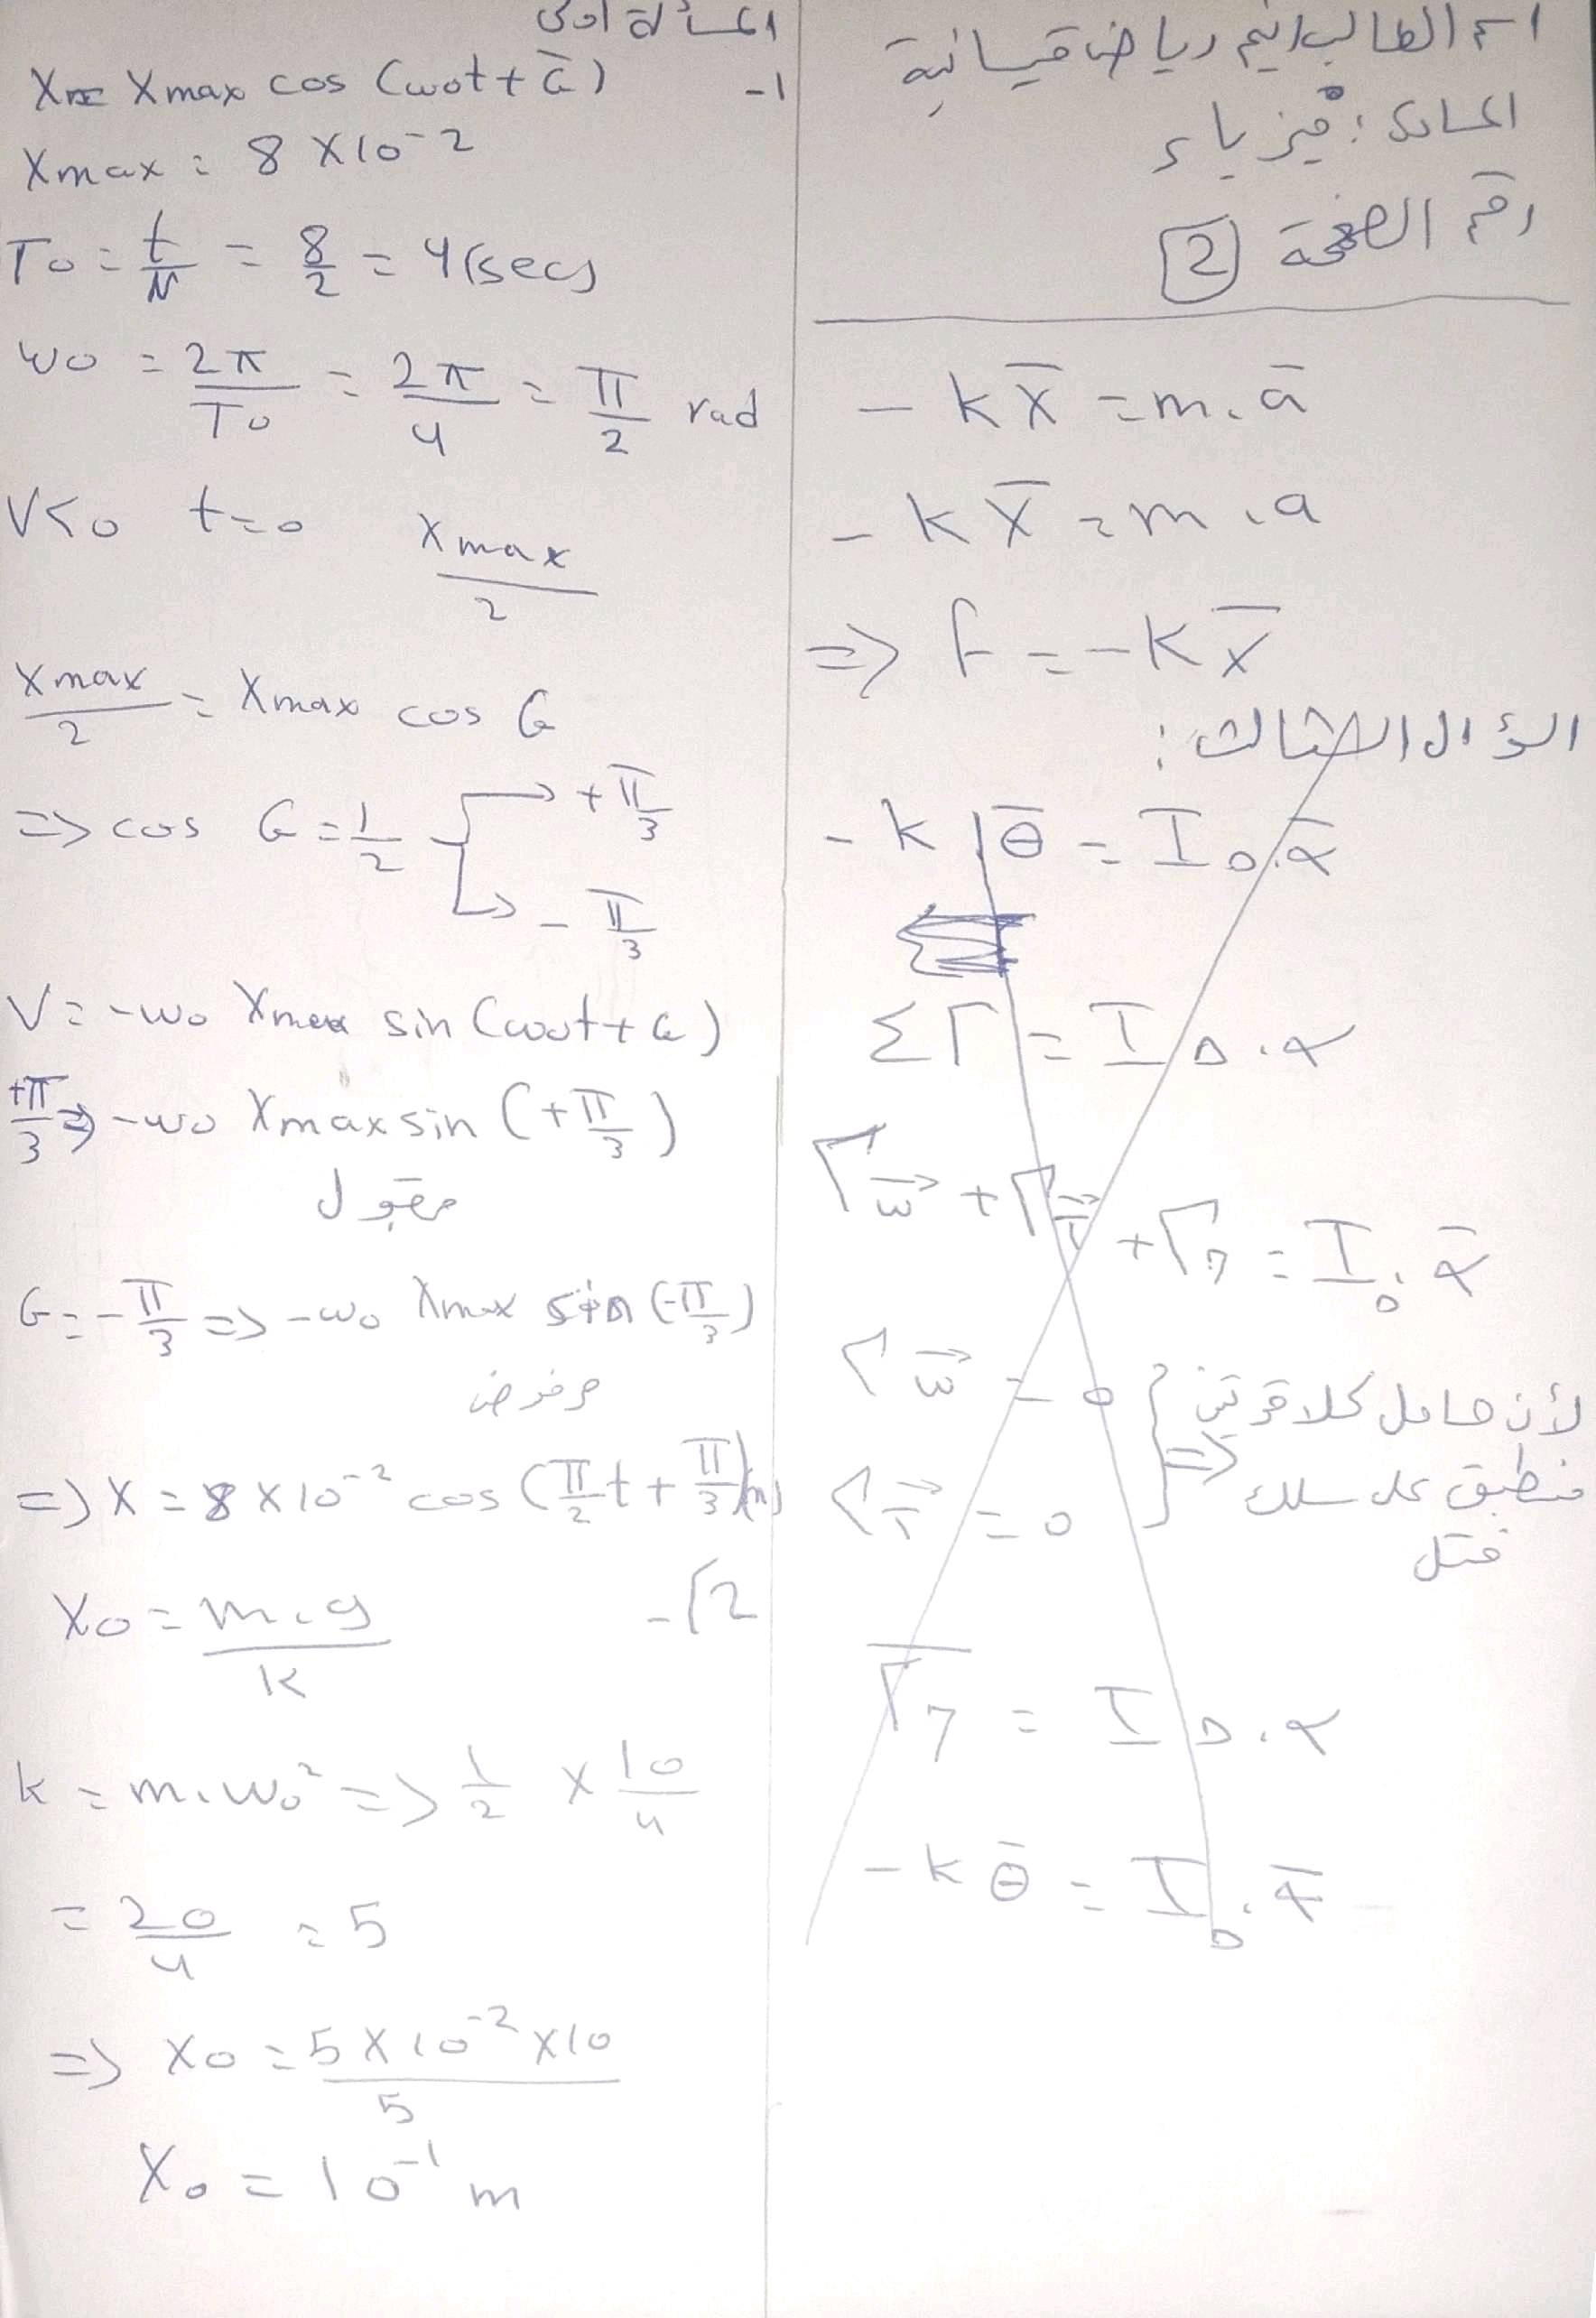 اسم الطالب ايهم رياض قيسانية
المادة : فيزياء
رقم الصفحة 2
- k x̄ = m . ā
- k x̄ = m . a
=> F = - k x̄
السؤال الثالث :
- k θ̄ = I₀ . ᾱ
ΣΓ = I Δ . α
Γ w⃗ + Γ T⃗ + Γ η = I Δ . ᾱ
Γ w⃗ = 0
Γ T⃗ = 0
لأن حامل كلا قوتين
منطبق على سلك
فتل
Γ η = I Δ . α
- k θ̄ = I Δ . ᾱ
المسألة اولى
1- X = Xmax cos (ω0t + φ̄)
Xmax = 8 X 10⁻²
T0 = t/N = 8/2 = 4 (sec)
ω0 = 2π/T0 = 2π/4 = π/2 rad
V<0 t=0 Xmax/2
Xmax/2 = Xmax cos φ
=> cos φ = 1/2 → +π/3
→ -π/3
V = -ω0 Xmax sin (ω0t + φ)
+π/3 => -ω0 Xmax sin (+π/3)
مقبول
φ = -π/3 => -ω0 Xmax sin (-π/3)
مرفوض
=> X = 8 X 10⁻² cos (π/2 t + π/3) (m)
2- X0 = m.g/k
k = m.ω0² => 1/2 X 10/4
= 20/4 = 5
=> X0 = 5 X 10⁻² X 10/5
X0 = 10⁻¹ m